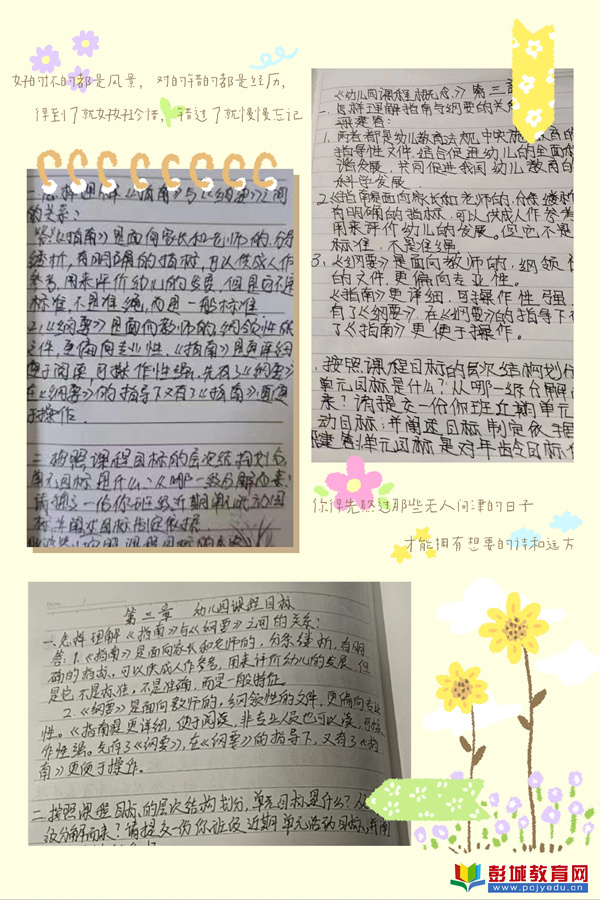 好的坏的都是风景，对的错的都是经历，
得到了就好好珍惜，错过了就慢慢忘记
一.怎样理解《指南》与《纲要》之间
的关系？
答：《指南》是面向家长和老师的，分条
缕析，有明确的指标，可以供成人作
参考，用来评价幼儿的发展，但是它不是
标准，不是准绳，而是一般标准
2.《纲要》是面向教师的，纲领性的
文件，更偏向专业性，《指南》是更详细
便于阅读，可操作性强，先有了《纲要》
在《纲要》的指导下又有了《指南》更便
于操作.
二.按照课程目标的层次结构划分，
单元目标是什么？从哪一级分解而来？
请提交一份你班级近期单元活动目
标，并阐述目标制定依据
《幼儿园课程概念》第三
一.怎样理解指南与纲要的关
1.两者都是幼儿教育法规中实施
指导性文件，结合促进幼儿的全面
谐发展，共同促进我国幼儿教育的
科学发展.
2.《指南》是面向家长和老师的，分条缕析
有明确的指标，可以供成人作参考
用来评价幼儿的发展。但它不是
标准，不是准绳.
3.《纲要》是面向教师的，纲领
的文件，更偏向专业性。
《指南》更详细，可操作性强，
有了《纲要》，在《纲要》的指导下
了《指南》更便于操作。
.按照课程目标的层次结构划分
单元目标是什么？从哪一级分解
来？请提交一份你班近期单元
动目标，并阐述目标制定依据
单元目标是对年龄目标
你得先熬过那些无人问津的日子
才能拥有想要的诗和远方
第三章 幼儿园课程目标
一.怎样理解《指南》与《纲要》之间的关系？
答：1.《指南》是面向家长和老师的，分条缕析，有明
确的指标，可以供成人参考，用来评价幼儿的发展，但
是它不是标准，不是准确，而是一般特征。
2.《纲要》是面向教师的，纲领性的文件，更偏向专业
性。《指南》是更详细，便于阅读，非专业人员也可以读，可操
作性强。先有了《纲要》，在《纲要》的指导下，又有了《指
南》更便于操作。
二.按照课程目标的层次结构划分，单元目标是什么？从
级分解而来？请提交一份你班级近期单元活动目标，并阐
彭城教育网
www.pcjyedu.cn